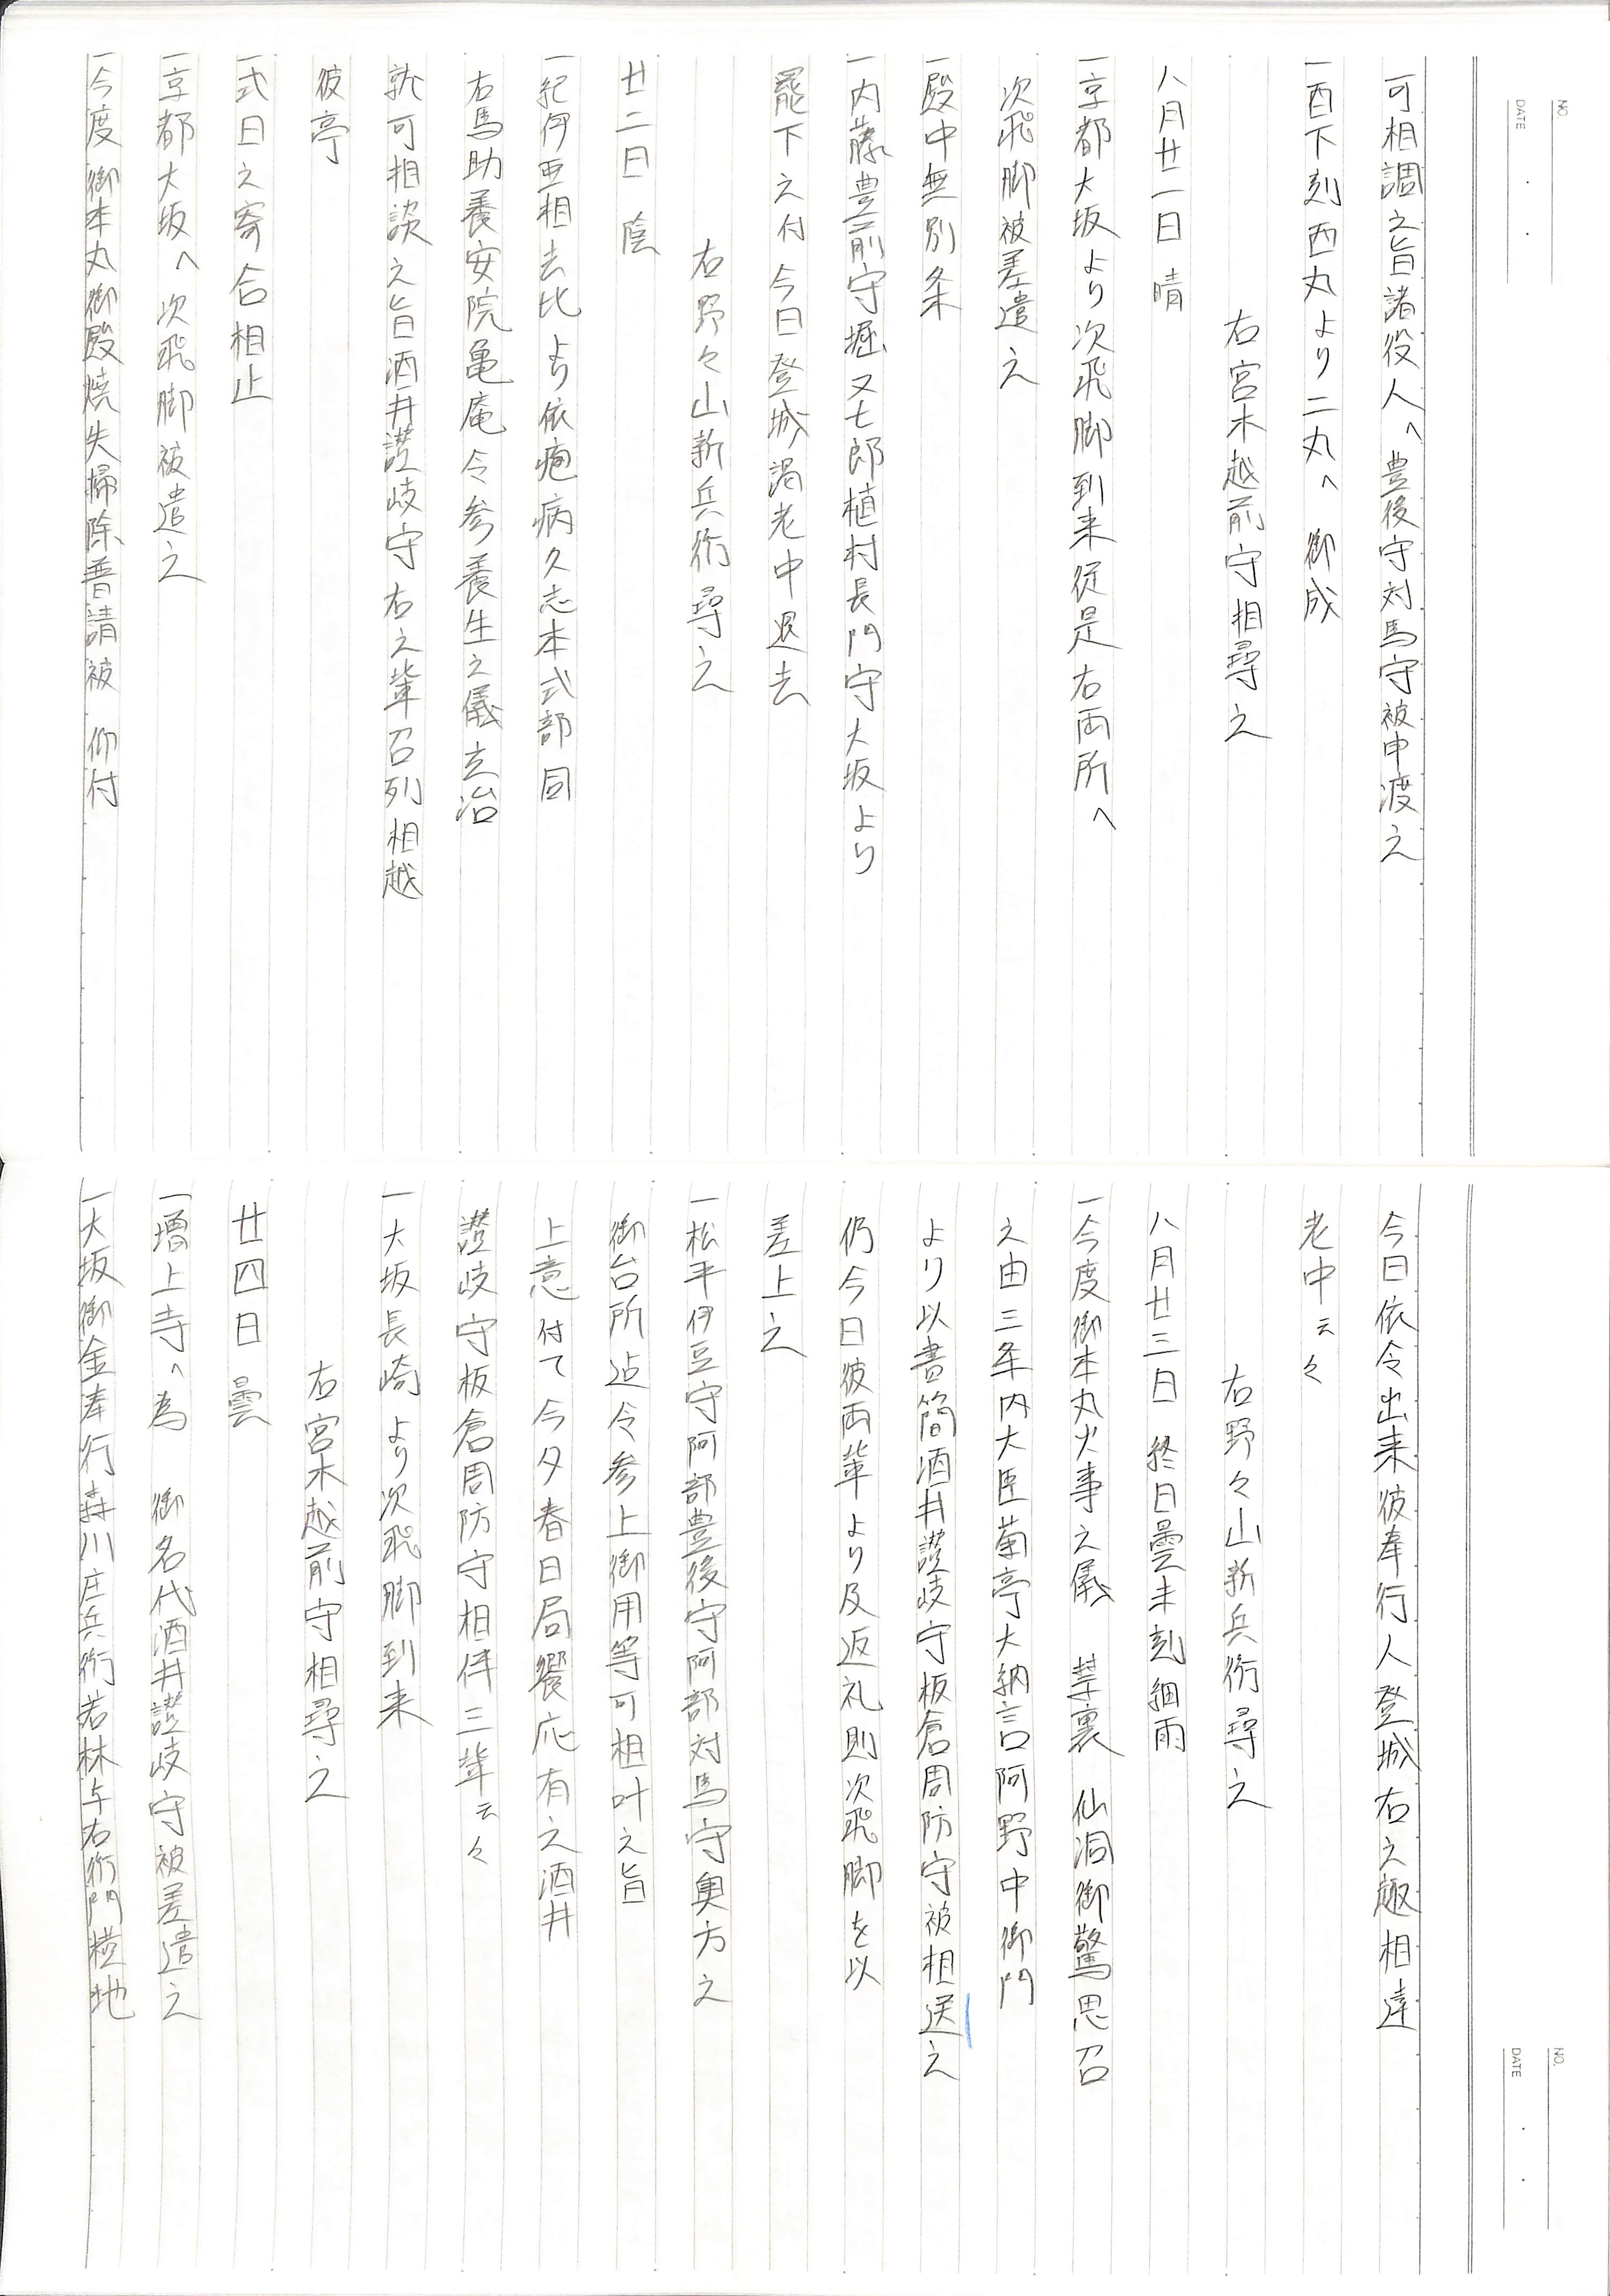 NO.
DATE
可相調之旨諸役人へ豊後守対馬守被申渡之
一酉下刻西丸より二丸へ 御成
右宮木越前守相尋之
八月廿一日 晴
一京都大坂より次飛脚到来従是右両所へ
次飛脚被差遣之
一殿中無別条
一内藤豊前守堀又七郎植村長門守大坂より
罷下之付今日登城謁老中退去
右野々山新兵衛尋之
廿二日 陰
一紀伊亜相去比より依疱病久志本式部同
右馬助養安院亀庵令参養生之儀立治
就可相談之旨酒井讃岐守右之輩召列相越
彼亭
一式日之寄合相止
一京都大坂へ次飛脚被遣之
一今度御本丸御殿焼失掃除普請被 仰付
NO.
DATE
今日依令出来彼奉行人登城右之趣相達
老中云々
右野々山新兵衛尋之
八月廿三日 終日曇未刻細雨
一今度御本丸火事之儀 禁裏 仙洞御驚思召
之由三条内大臣菊亭大納言阿野中御門
より以書簡酒井讃岐守板倉周防守被相送之
仍今日彼両輩より及返礼則次飛脚を以
差上之
一松平伊豆守阿部豊後守阿部対馬守奥方之
御台所迠令参上御用等可相叶之旨
上意付て今夕春日局饗応有之酒井
讃岐守板倉周防守相伴三輩云々
一大坂長崎より次飛脚到来
右宮木越前守相尋之
廿四日 曇
一増上寺へ為 御名代酒井讃岐守被差遣之
一大坂御金奉行森川庄兵衛若林与右衛門替地